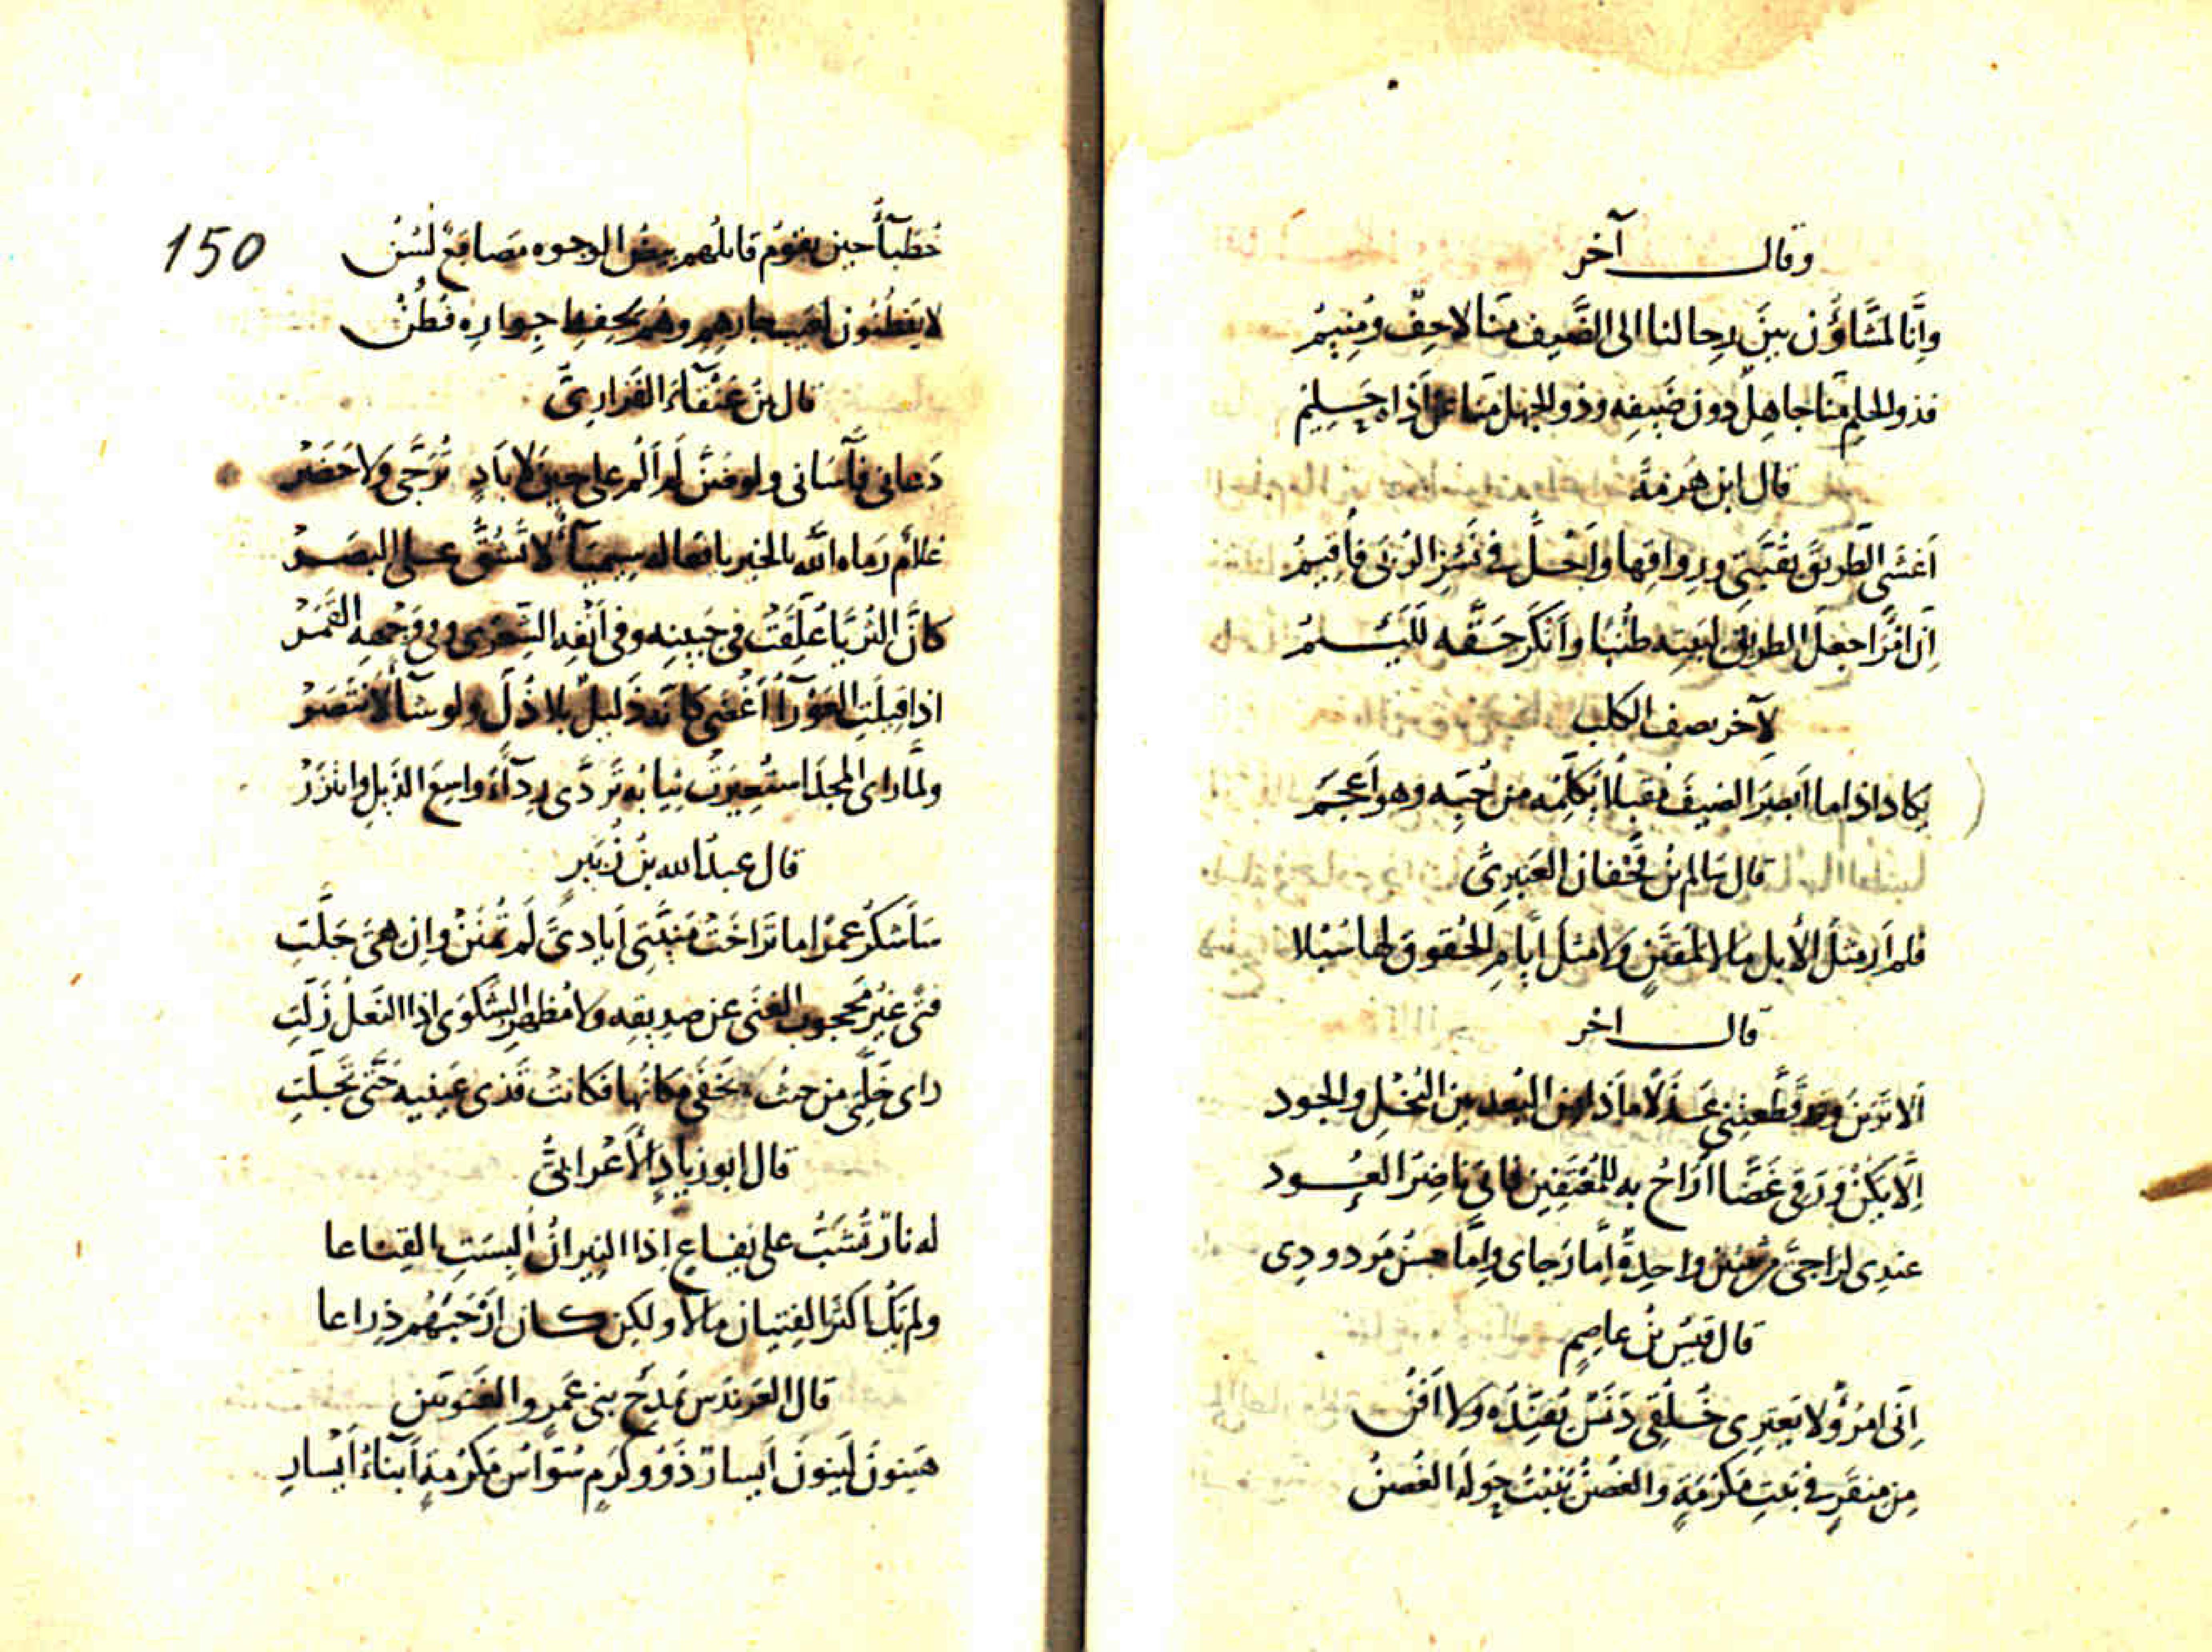 وقال آخر
وانّا لمشّاؤن بين رحالنا الى الضّيف منّا لاحف ومنيم
فذو الحلم منّا جاهل دون ضيفه وذو الجهل منّا عن اذاه حليم
قال ابن هرمة
اغشى الطّريق بقبّتى ورواقها واحلّ فى نشز الربى فاقيم
انّ امرًا جعل الطريق لبيته طنبًا وانكر حقّه للئيم
لآخر يصف الكلب
يكاد اذا ما ابصر الضيف مقبلًا يكلّمه من حبّه وهو اعجم
قال سالم بن قحفان العنبرىّ
فلم ار مثل الابل مالًا لمقتن ولا مثل ايّام الحقوق لها سبلا
قال اخر
الا ترين وقد قطّعتنى عذلًا ماذا من البعد بين البخل والجود
الّا يكن ورقى غضّا اراح به للمعتفين فانى ناضر العود
قال قيس بن عاصم
انّى امرؤ لا يعترى خلقى دنس يفنّده ولا افن
من منقر فى بيت مكرمة والغصن ينبت حوله الغصن
150
خطبآء حين يقوم قائلهم بيض الوجوه مصاقع لسن
لا يفطنون لعيب جارهم وهم لحفظ جواره فطن
قال بن عنقآء الفزارىّ
دعانى فآسانى ولو ضنّ لم الم على حين لا باد ترجّى ولا حضر
غلام رماه الله بالخير يافعا له سيميآء لا تشقّ على البصر
كانّ الثريّا علّقت فى جبينه وفى انفه الشعرى وفى وجهه القمر
اذا قيلت العورآء اغضى كانه ذليل بلا ذل ولو شآء لانتصر
ولمّا راى المجد استعيرت ثيابه تردّى ردآء واسع الذيل واتزر
قال عبد الله بن زبير
ساشكر عمرا ما تراخت منيّتى ايادى لم تمنن وان هى جلّت
فتى غير محجوب الغنى عن صديقه ولا مظهر الشكوى اذا النعل زلّت
راى خلّتى من حيث يخفى مكانها فكانت قذى عينيه حتّى تجلّت
قال ابو زياد الاعرابىّ
له نار تشبّ على يفاع اذا النيران البست القناعا
ولم يك اكثر الفتيان مالا ولكن كان ارحبهم ذراعا
قال العرندس يمدح بنى عمرو الغنويين
هينون لينون ايسار ذوو كرم سوّاس مكرمة ابناء ايسار